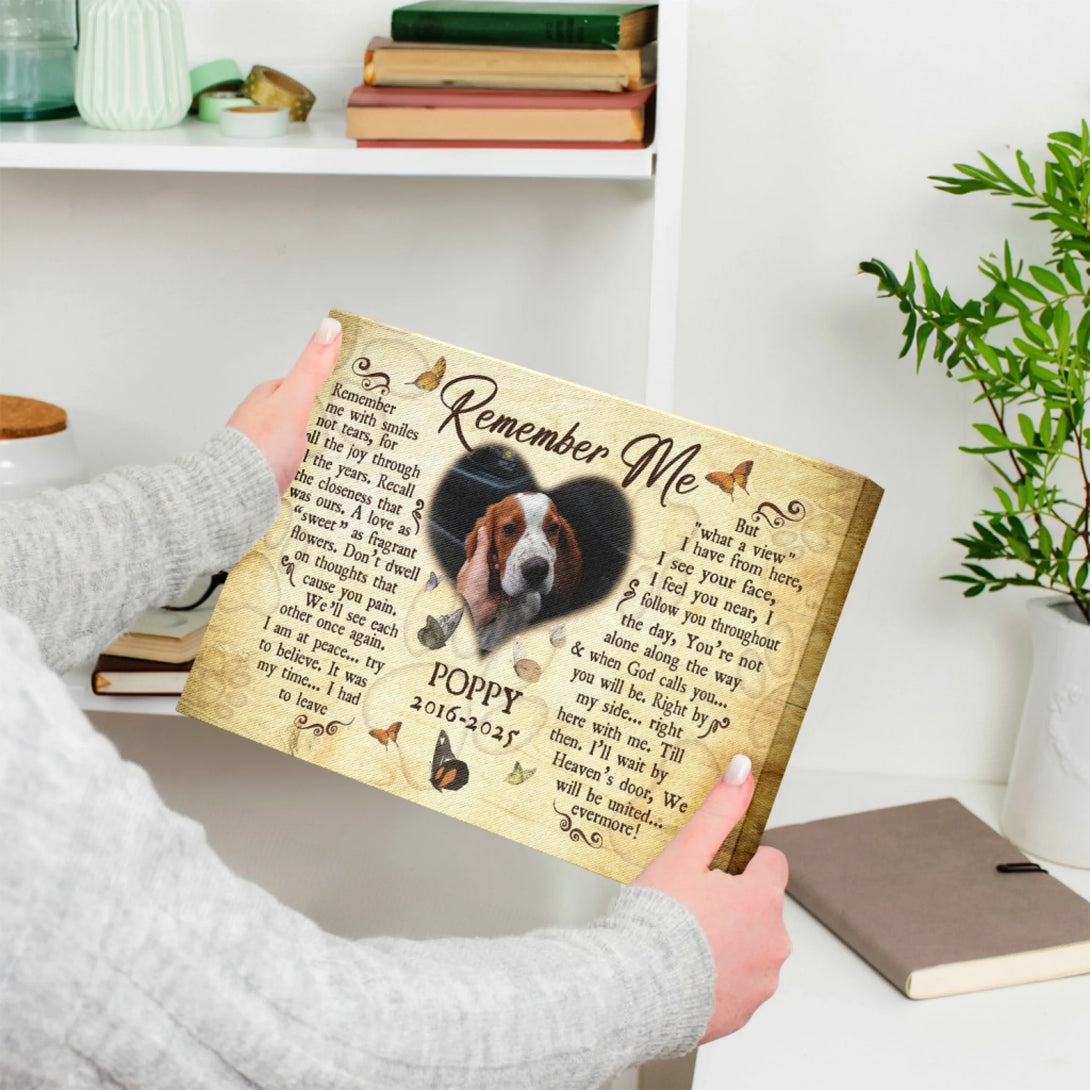 Remember Me
Remember
me with smiles
not tears, for
all the joy through
the years. Recall
the closeness that
was ours. A love as
"sweet" as fragrant
flowers. Don't dwell
on thoughts that
cause you pain.
We'll see each
other once again.
I am at peace... try
to believe. It was
my time... I had
to leave
POPPY
2016-2025
But
"what a view"
I have from here,
I see your face,
I feel you near, I
follow you throughout
the day, You're not
alone along the way
& when God calls you...
you will be. Right by
my side... right
here with me. Till
then. I'll wait by
Heaven's door, We
will be united...
evermore!